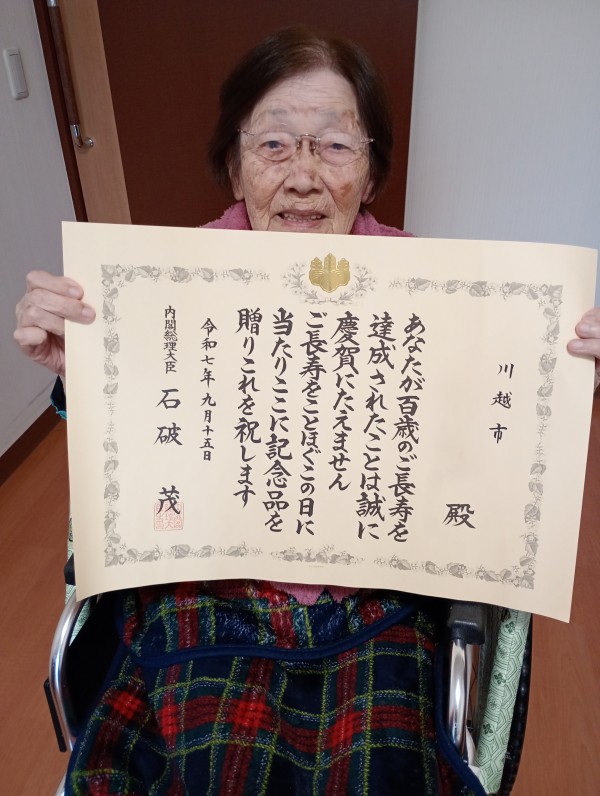 川越市
殿
あなたが百歳のご長寿を
達成されたことは誠に
慶賀にたえません
ご長寿をことほぐこの日に
当たりここに記念品を
贈りこれを祝します
令和七年九月十五日
内閣総理大臣 石破 茂